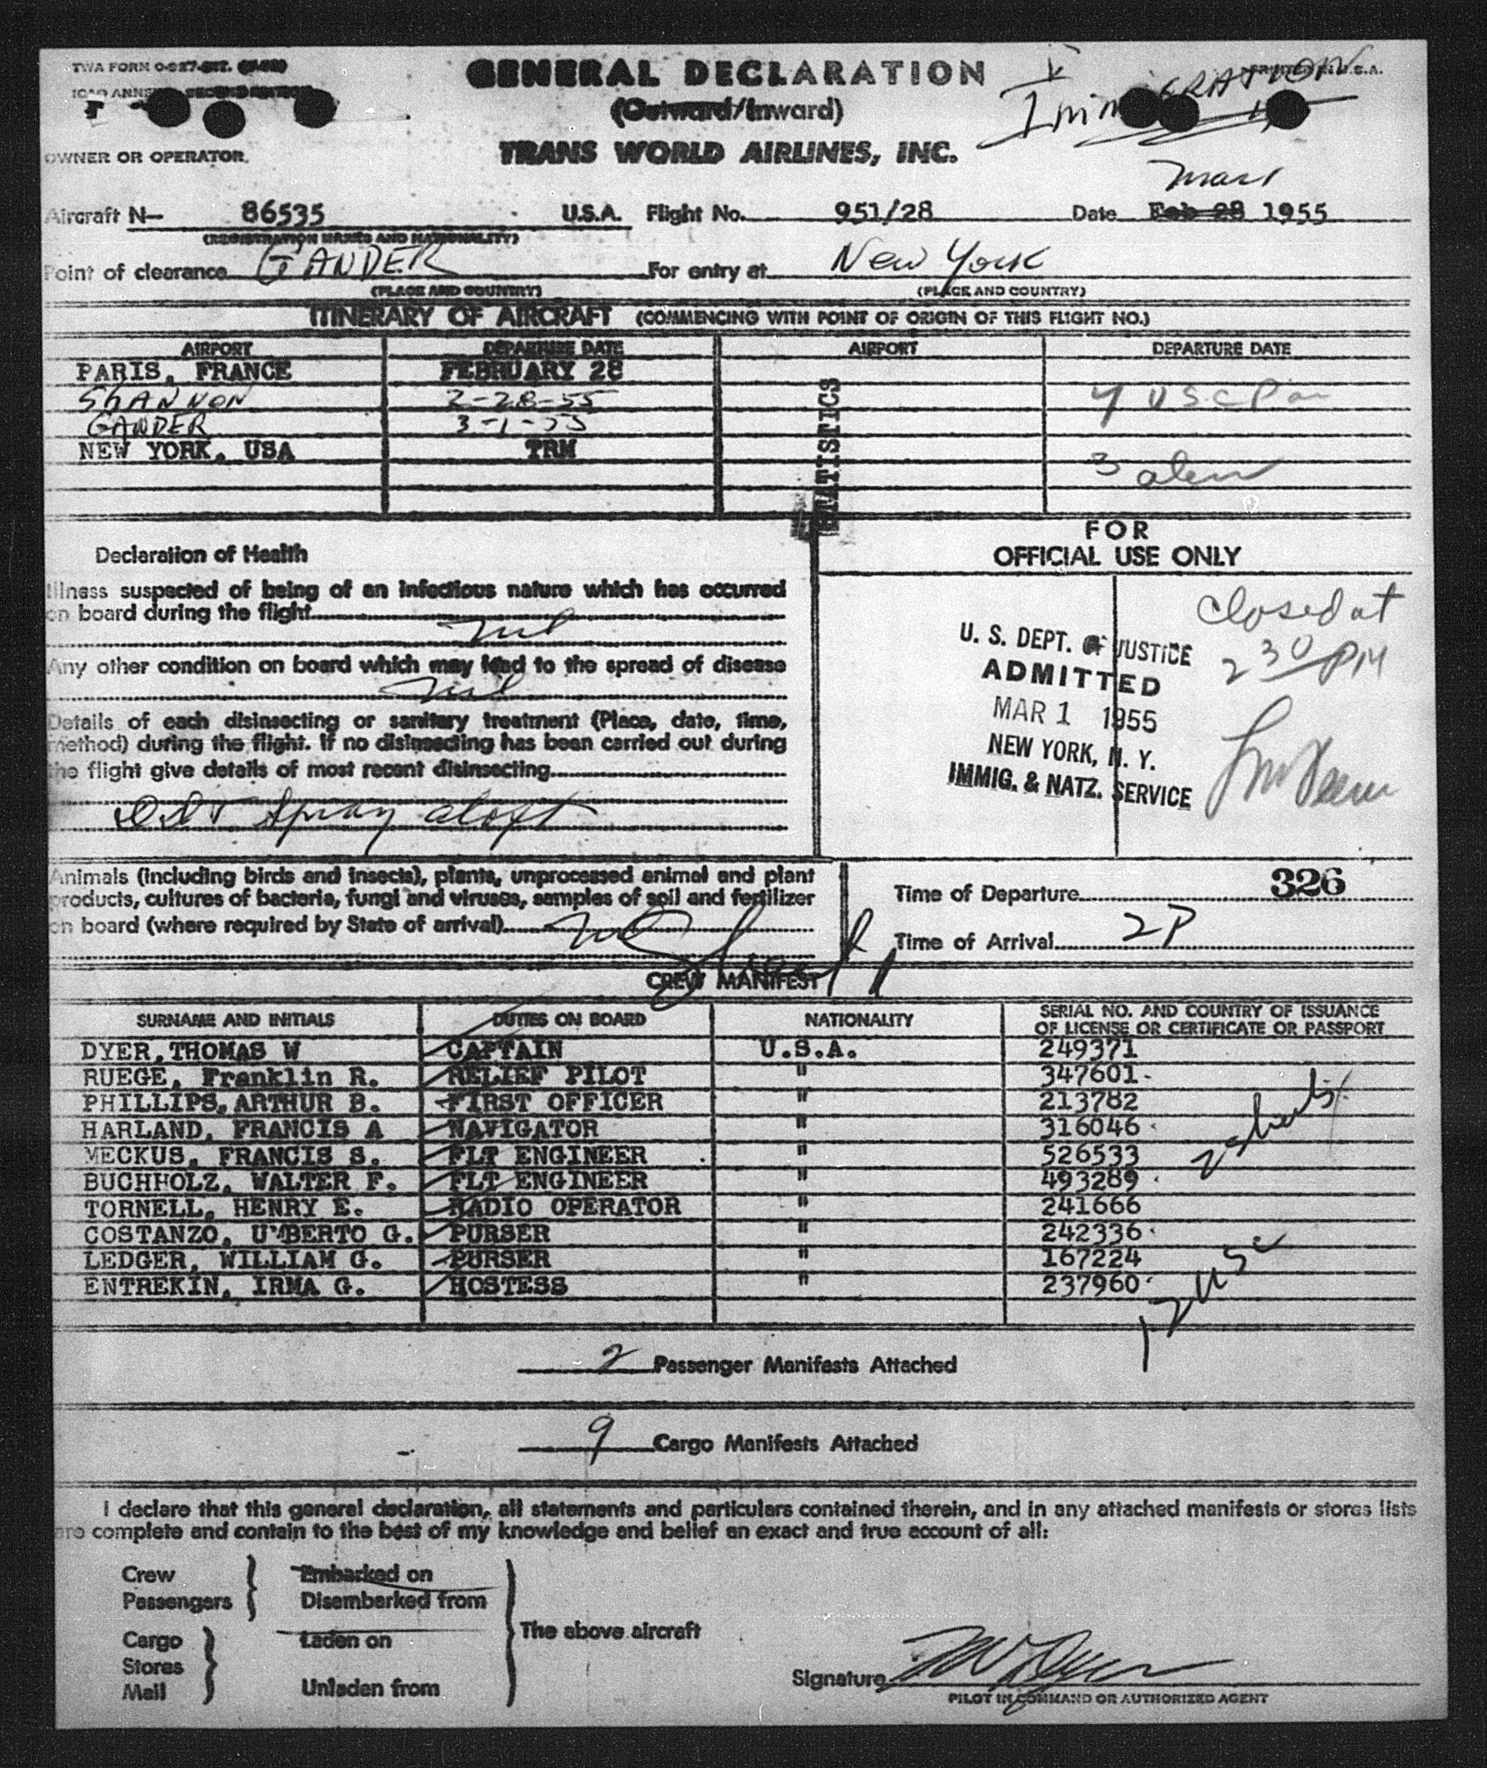 TWA FORM
GENERAL DECLARATION
(Outward/Inward)
PRINTED IN U.S.A.
IMMIGRATION
OWNER OR OPERATOR
TRANS WORLD AIRLINES, INC.
Mar 1
Aircraft N— 86535 U.S.A. Flight No. 951/28 Date Feb 28 1955
(REGISTRATION MARKS AND NATIONALITY)
Point of clearance GANDER For entry at New York
(PLACE AND COUNTRY) (PLACE AND COUNTRY)
ITINERARY OF AIRCRAFT (COMMENCING WITH POINT OF ORIGIN OF THIS FLIGHT NO.)
AIRPORT DEPARTURE DATE AIRPORT DEPARTURE DATE
PARIS, FRANCE FEBRUARY 28
SHANNON 2-28-55
GANDER 3-1-55
NEW YORK, USA TRM
STATISTICS
3 alien
FOR
OFFICIAL USE ONLY
Declaration of Health
Illness suspected of being of an infectious nature which has occurred
on board during the flight
nil
Any other condition on board which may lead to the spread of disease
nil
Details of each disinsecting or sanitary treatment (Place, date, time,
method) during the flight. If no disinsecting has been carried out during
the flight give details of most recent disinsecting
DDT Spray aloft
closed at
2 30 PM
U. S. DEPT. OF JUSTICE
ADMITTED
MAR 1 1955
NEW YORK, N. Y.
IMMIG. & NATZ. SERVICE
Animals (including birds and insects), plants, unprocessed animal and plant
products, cultures of bacteria, fungi and viruses, samples of soil and fertilizer
on board (where required by State of arrival) nil
326
Time of Departure
Time of Arrival 2P
CREW MANIFEST
SURNAME AND INITIALS DUTIES ON BOARD NATIONALITY SERIAL NO. AND COUNTRY OF ISSUANCE
OF LICENSE OR CERTIFICATE OR PASSPORT
DYER, THOMAS W CAPTAIN U.S.A. 249371
RUEGE, Franklin R. RELIEF PILOT " 347601
PHILLIPS, ARTHUR B. FIRST OFFICER " 213782
HARLAND, FRANCIS A NAVIGATOR " 316046
MECKUS, FRANCIS S. FLT ENGINEER " 526533
BUCHHOLZ, WALTER F. FLT ENGINEER " 493289
TORNELL, HENRY E. RADIO OPERATOR " 241666
COSTANZO, UMBERTO G. PURSER " 242336
LEDGER, WILLIAM G. PURSER " 167224
ENTREKIN, IRMA G. HOSTESS " 237960
12 USC
2 Passenger Manifests Attached
9 Cargo Manifests Attached
I declare that this general declaration, all statements and particulars contained therein, and in any attached manifests or stores lists
are complete and contain to the best of my knowledge and belief an exact and true account of all:
Crew Embarked on
Passengers Disembarked from
The above aircraft
Cargo Laden on
Stores
Mail Unladen from
Signature TW Dyer
PILOT IN COMMAND OR AUTHORIZED AGENT